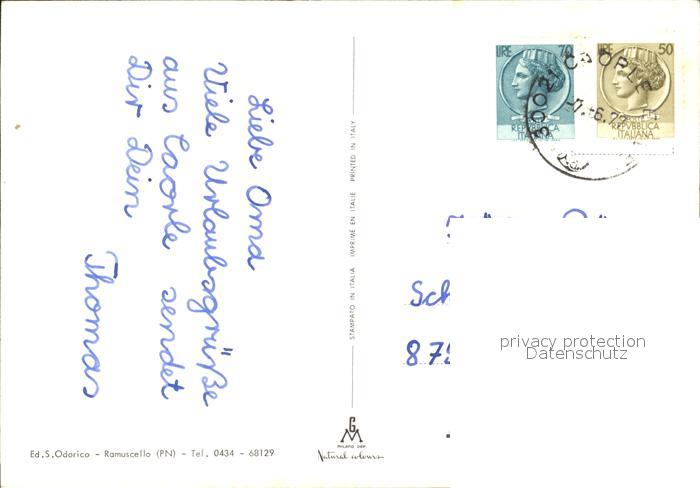 Liebe Oma
Viele Urlaubsgrüße
aus Caorle sendet
Dir Dein
Thomas
STAMPATO IN ITALIA IMPRIMÉ EN ITALIE PRINTED IN ITALY
LIRE 70
REPVBBLICA
ITALIANA
LIRE 50
REPVBBLICA
ITALIANA
30021 CAORLE
Sch
872
privacy protection
Datenschutz
G
M
MILANO DEP.
Natural colours
Ed.S.Odorico - Ramuscello (PN) - Tel. 0434 - 68129